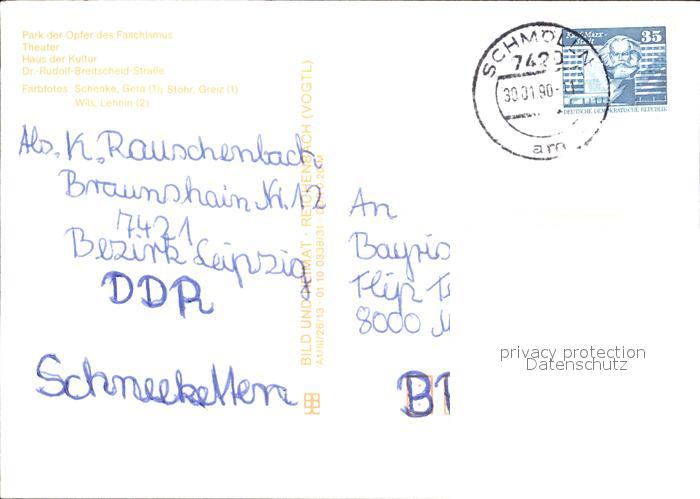 Park der Opfer des Faschismus
Theater
Haus der Kultur
Dr.-Rudolf-Breitscheid-Straße
Farbfotos: Schenke, Gera (1); Stohr, Greiz (1)
Wils, Lehnin (2)
Abs. K. Rauschenbach
Braunshain Nr. 12
7421
Bezirk Leipzig
DDR
Schneeketten
BILD UND HEIMAT · REICHENBACH (VOGTL)
A1/III/26/13 · 01 10 0338/31
SCHMÖLLN
7420
30.01.90
Karl-Marx-
Stadt
35
DEUTSCHE DEMOKRATISCHE REPUBLIK
An
Bayris
8000 M
privacy protection
Datenschutz